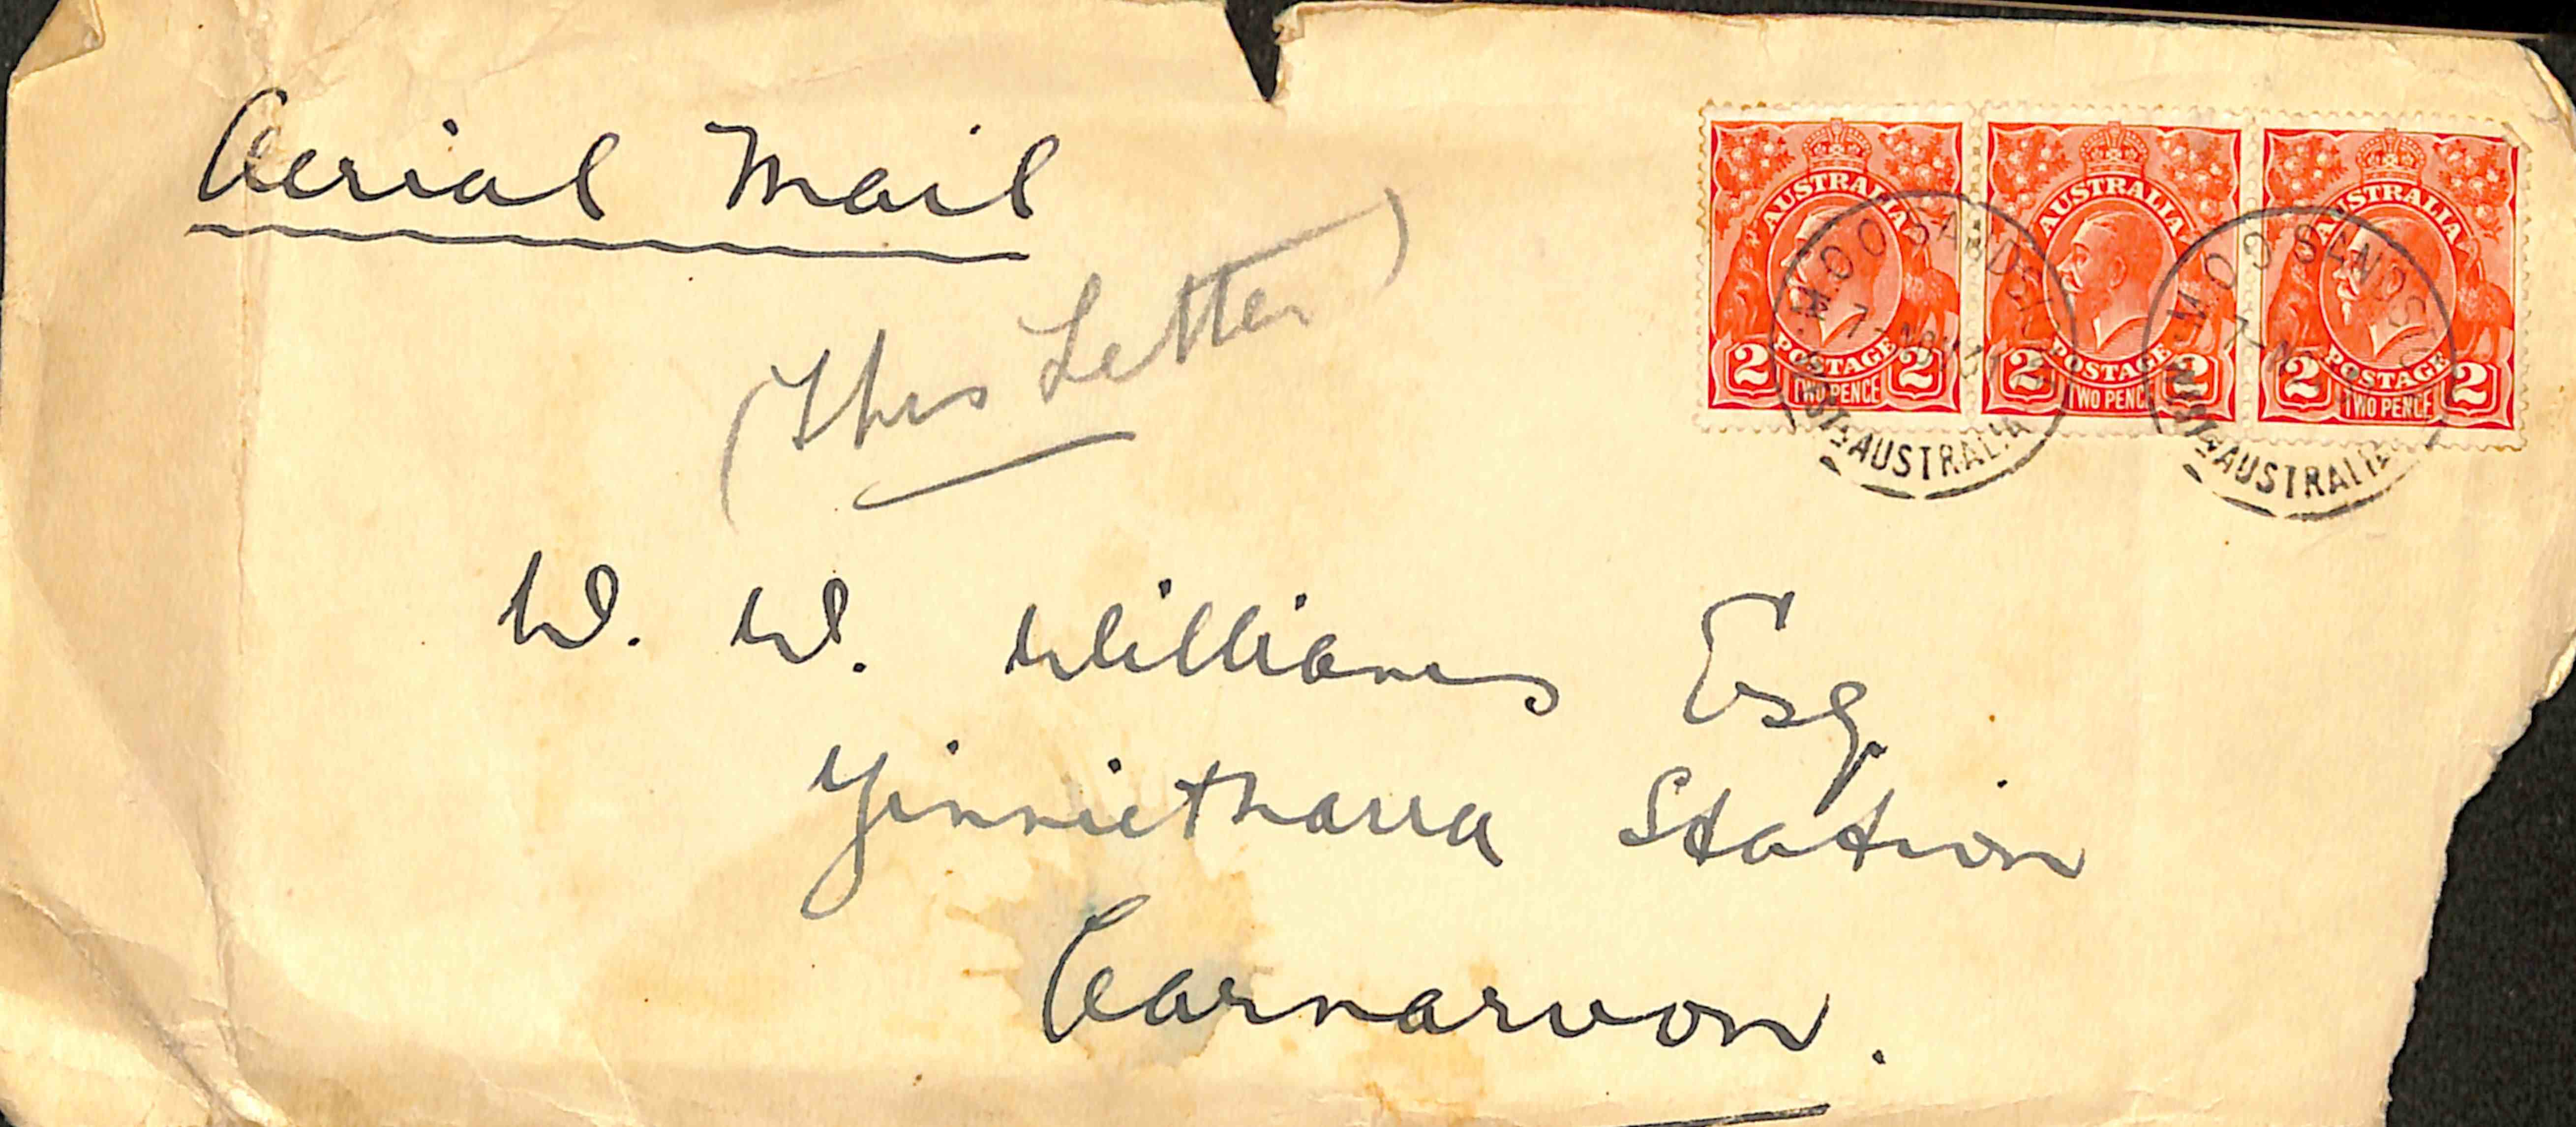 Aerial Mail
(This Letter)
W. W. Williams Esq.
Yinnietharra Station
Carnarvon.
AUSTRALIA
POSTAGE
2 TWO PENCE 2
AUSTRALIA
POSTAGE
2 TWO PENCE 2
AUSTRALIA
POSTAGE
2 TWO PENCE 2
M.O.O SANDSTONE
7-NOV 31
WESTN AUSTRALIA
M.O.O SANDSTONE
7-NO
WESTN AUSTRALIA